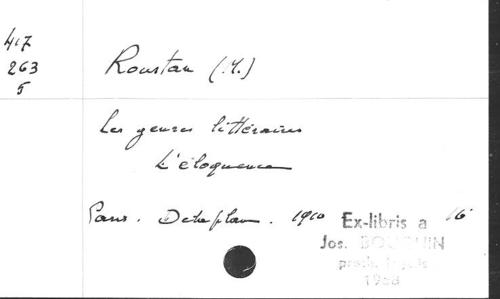 417
263
5
Roustan (M.)
Les genres littéraires
L'éloquence
Paris. Delaplane. 1910 16
Ex-libris a
Jos. BOUCHIN
1958